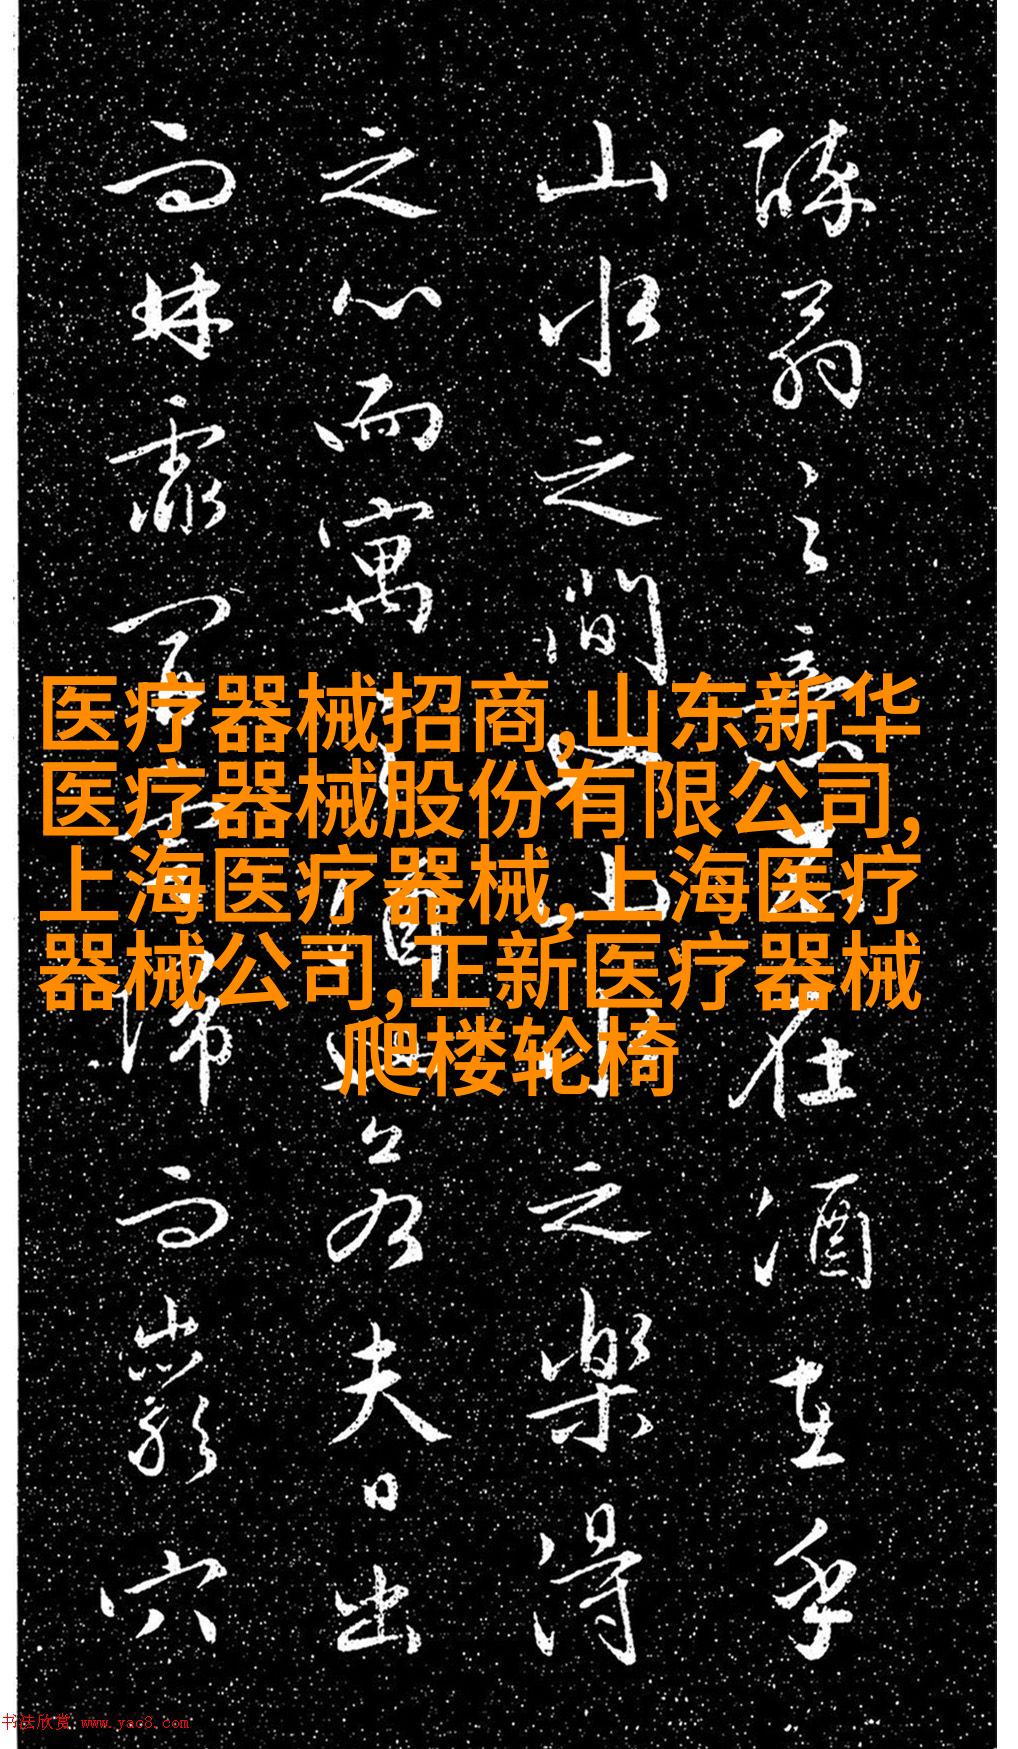 醉翁之意不在酒在乎
山水之間也山水之樂得
之心而寓之酒也若夫日出
而林霏開雲歸而巖穴
医疗器械招商,山东新华
医疗器械股份有限公司,
上海医疗器械,上海医疗
器械公司,正新医疗器械
爬楼轮椅
书法欣赏 www.yac8.com